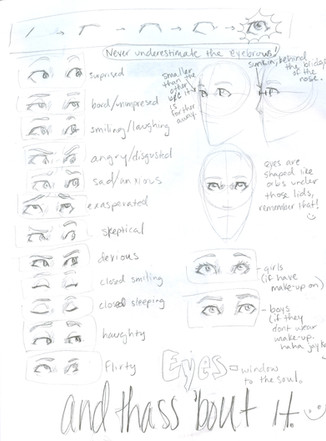 Never underestimate the eyebrows!
smaller
than the
other
b/c it
is further
away.
sunken, behind
the bridge
of the
nose.
suprised
bord/unimpressed
smiling/laughing
angry/disgusted
sad/anxious
exasperated
skeptical
devious
closed smiling
closed sleeping
haughty
flirty
eyes are
shaped like
orbs under
those lids,
remember that!
girls
(if have
make-up on)
boys
(if they
dont wear
make-up.
haha
Eyes - window
to the soul.
and thass 'bout it.